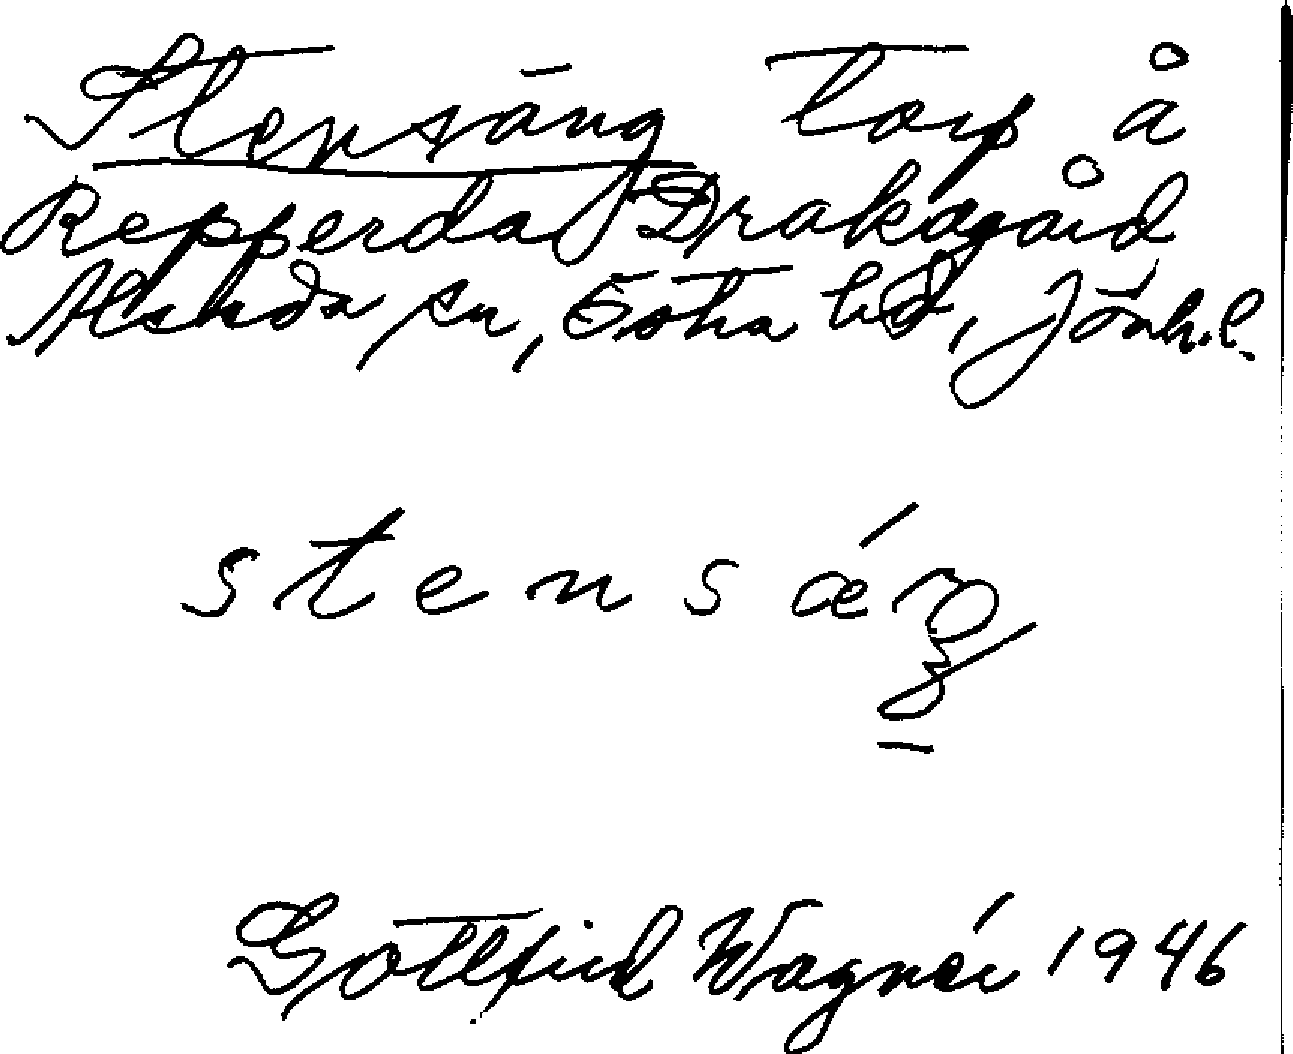 Stensäng Torp å
Repperda Drakagård
Alseda sn, Östra hd, Jönk.l.
stensǽŋ
Gottfrid Wagnér 1946